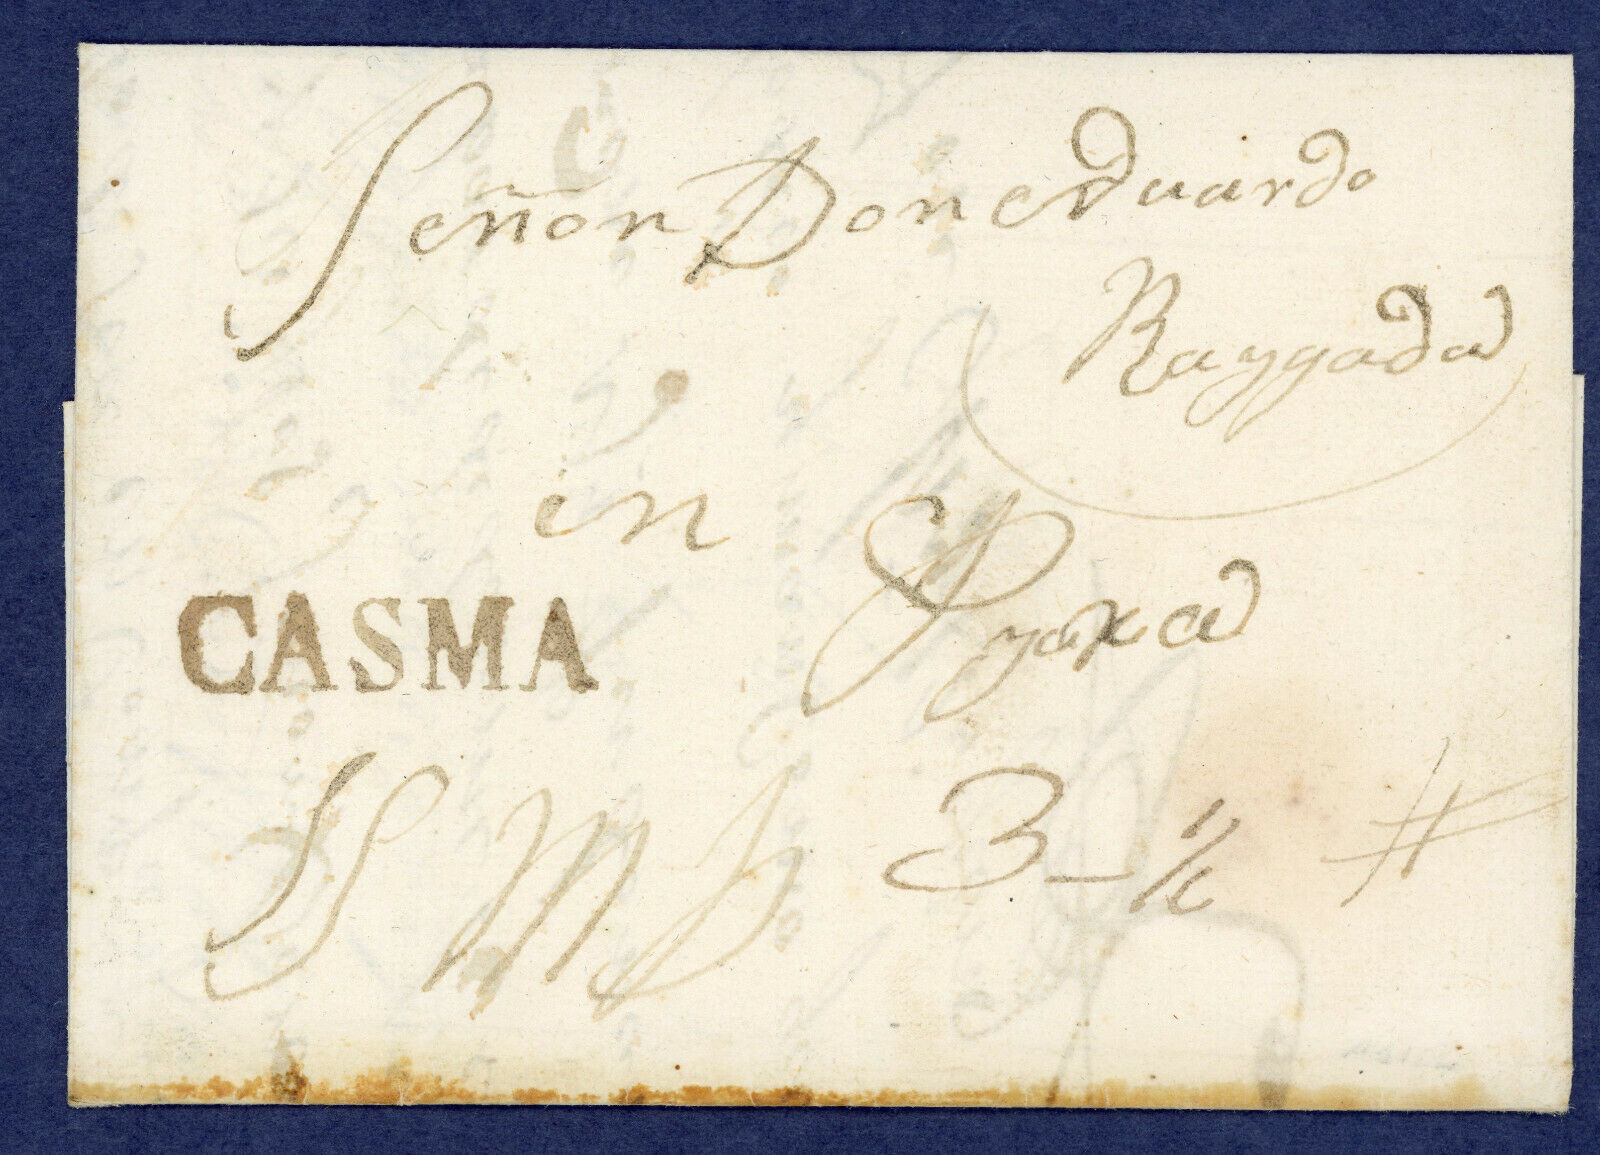 Señor Don eduardo
Raygada
en Pyura
CASMA
3_ ½ #